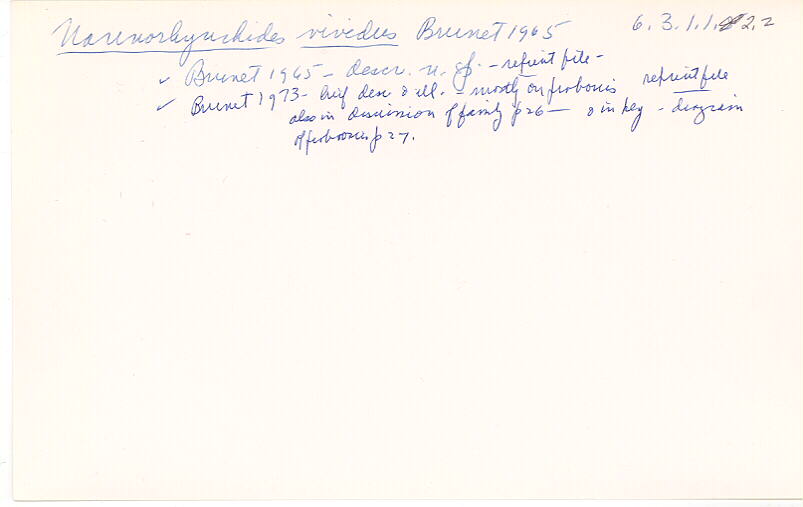 Narinorhynchides vividus Brunet 1965 6.3.1.1. 2.2
✓ Brunet 1965 – descr. n. sp. – reprint file –
✓ Brunet 1973 – brief desc & ill. – mostly on proboscis reprint file
also in discussion of family p 26 — & in key – diagram
of proboscis p 27.